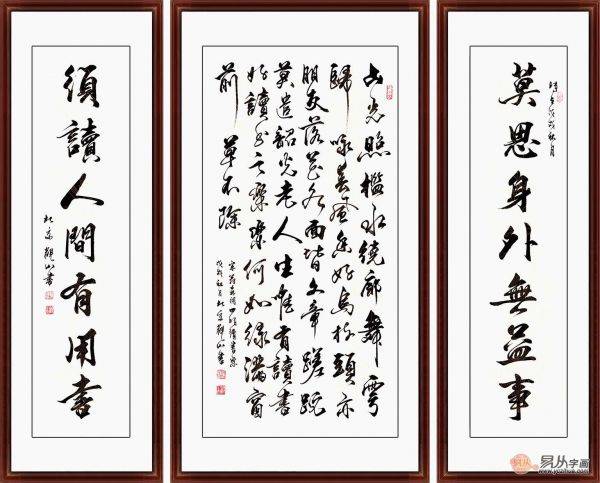 時在戊戌秋月
莫思身外無益事
山光照檻水繞廊舞雩
歸咏春風香好鳥枝頭亦
朋友落花水面皆文章蹉跎
莫遣韶光老人生惟有讀書
好讀書之樂樂何如綠滿窗
前草不除
宋翁森詩四時讀書樂
戊戌秋月北京觀山書
須讀人間有用書
北京觀山書
易从字画
www.yczihua.com